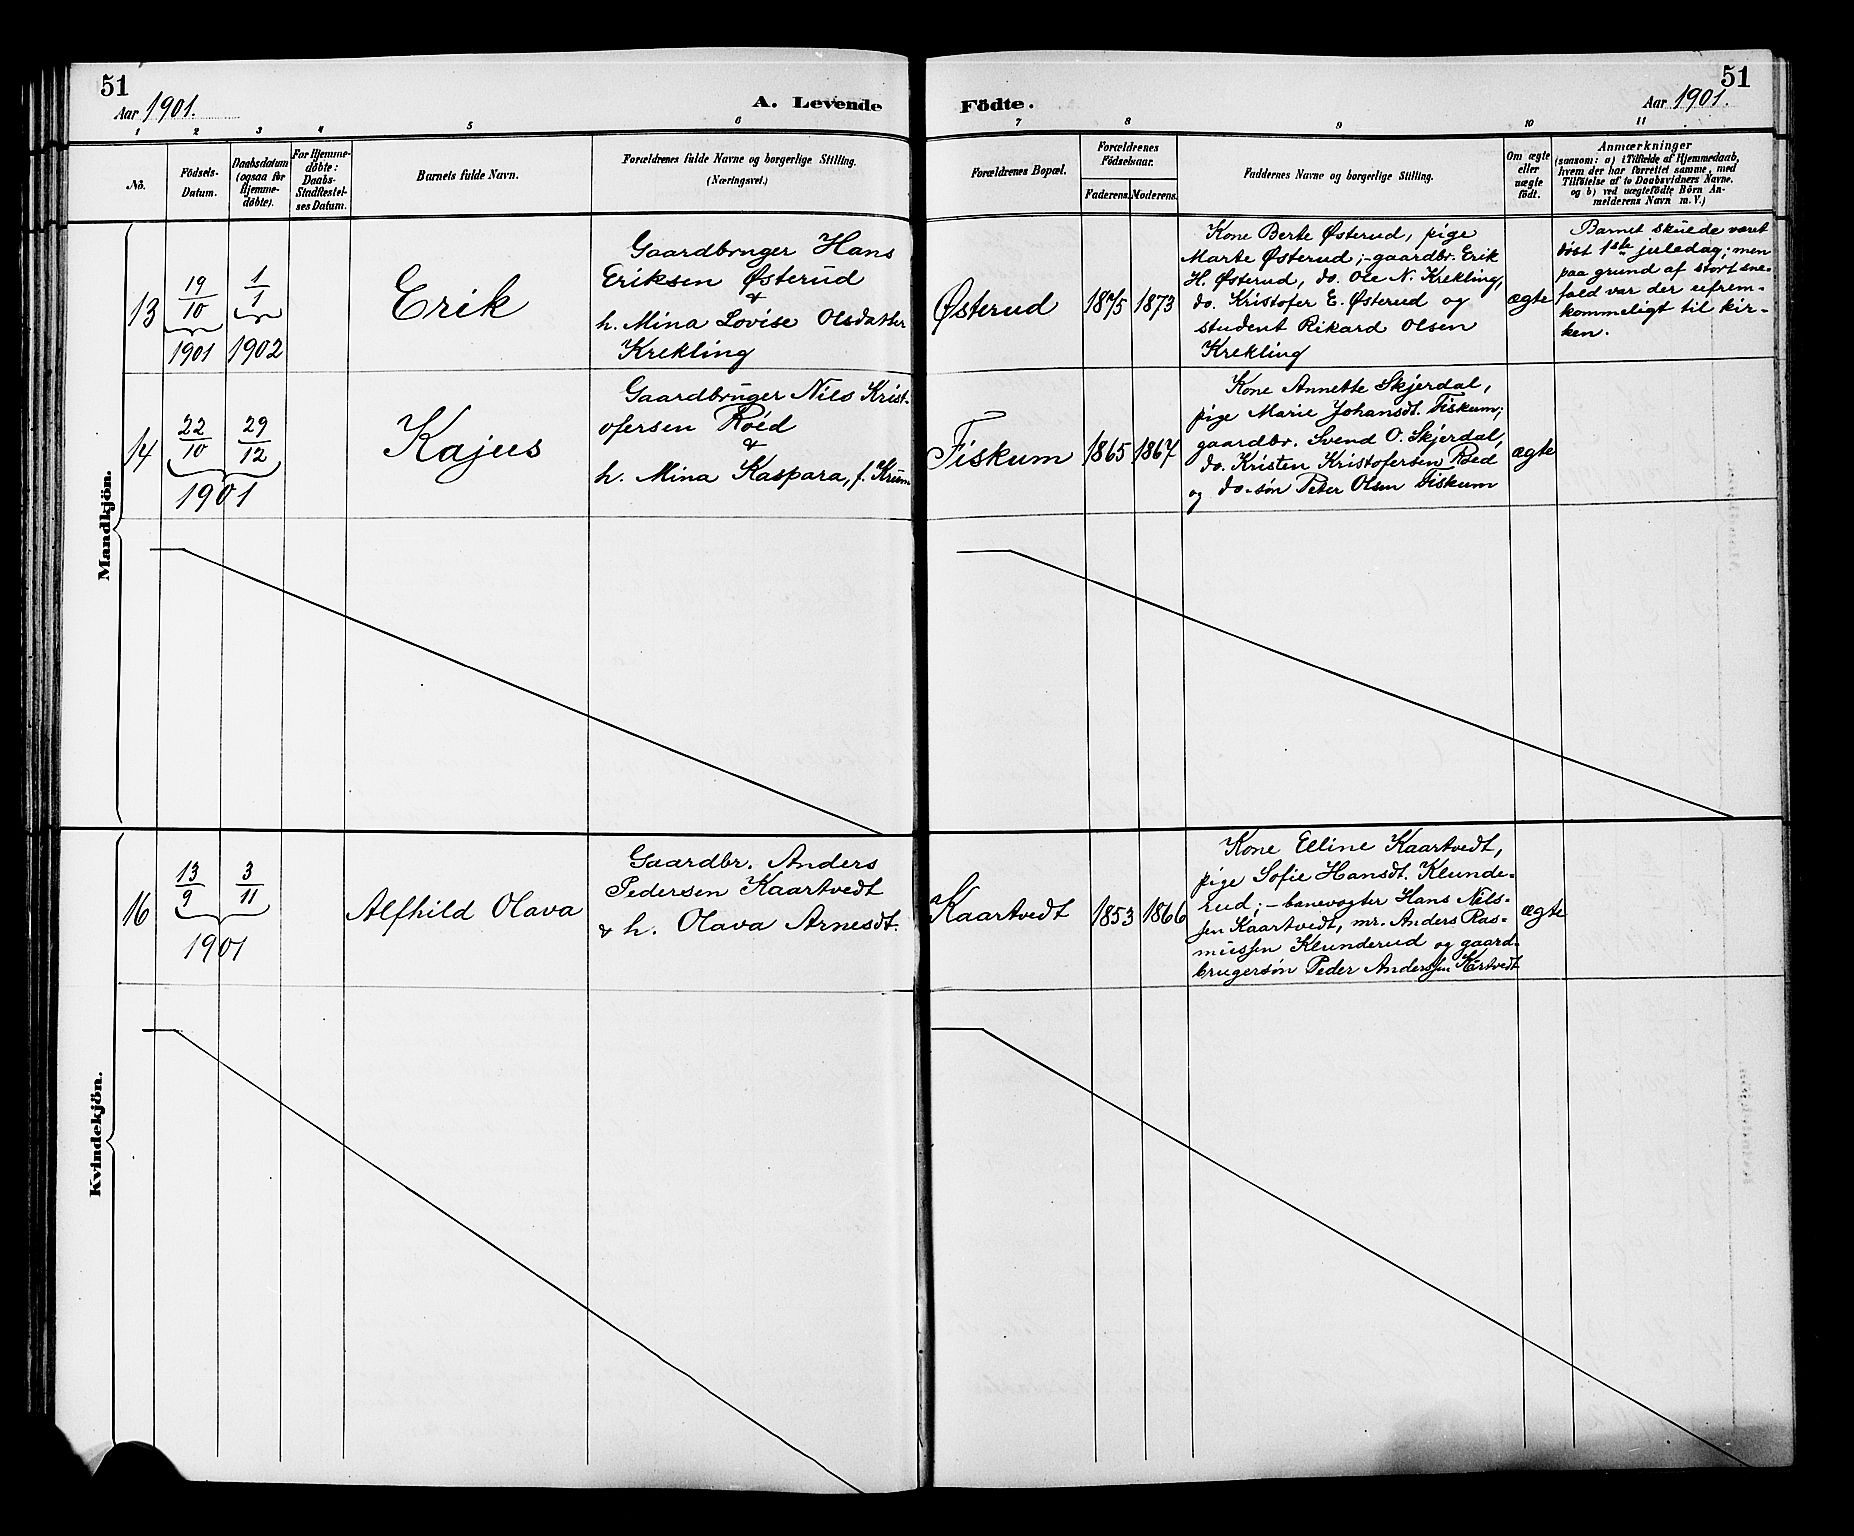 51
Aar 1901.
A. Levende
Födte.
51
Aar 1901.
1 2 3 4 5 6 7 8 9 10 11
No.
Födsels-
Datum.
Daabsdatum
(ogsaa for
Hjemme-
døbte).
For Hjemme-
døbte:
Daabs-
Stadfæstel-
ses Datum.
Barnets fulde Navn.
Forældrenes fulde Navne og borgerlige Stilling.
(Næringsvei.)
Forældrenes Bopæl.
Forældrenes
Födselsaar.
Faderens.
Moderens.
Faddernes Navne og borgerlige Stilling.
Om ægte
eller
uægte
födt.
Anmærkninger
(saasom: a) i Tilfælde af Hjemmedaab,
hvem der har forrettet samme, med
Tilföielse af to Daabsvidners Navne.
og b) ved uægtefödte Börn An-
melderens Navn m. V.)
Mandkjön.
13
19/10
1901
1/1
1902
Erik
Gaardbruger Hans
Eriksen Østerud
&
h. Mina Lovise Olsdatter
Krekling
Østerud
1875
1873
Kone Berte Østerud, pige
Marte Østerud;- gaardbr. Erik
H. Østerud, do. Ole N. Krekling,
do. Kristofer E. Østerud og
student Rikard Olsen
Krekling
ægte
Barnet skulde været
døbt 1ste juledag; men
paa grund af stort sne-
fald var der ufrem-
kommeligt til kir-
ken.
14
22/10
29/12
1901
Kajus
Gaardbruger Nils Krist-
ofersen Røed
&
h. Mina Kaspara, f. Krum
Fiskum
1865
1867
Kone Annette Skjerdal,
pige Marie Johansdt. Fiskum;
gaardbr. Svend O. Skjerdal,
do. Kristen Kristofersen Røed
og do.-søn Peter Olsen Fiskum
ægte
Kvindekjön.
16
13/9
3/11
1901
Alfhild Olava
Gaardbr. Anders
Pedersen Kaartvedt
& h. Olava Arnesdt.
Kaartvedt
1853
1866
Kone Elline Kaartvedt,
pige Sofie Hansdt. Klunde-
rud;- banevogter Hans Nils-
sen Kaartvedt, mr. Anders Ras-
mussen Klunderud og gaard-
brugersøn Peder Anderssen Kartvedt
ægte